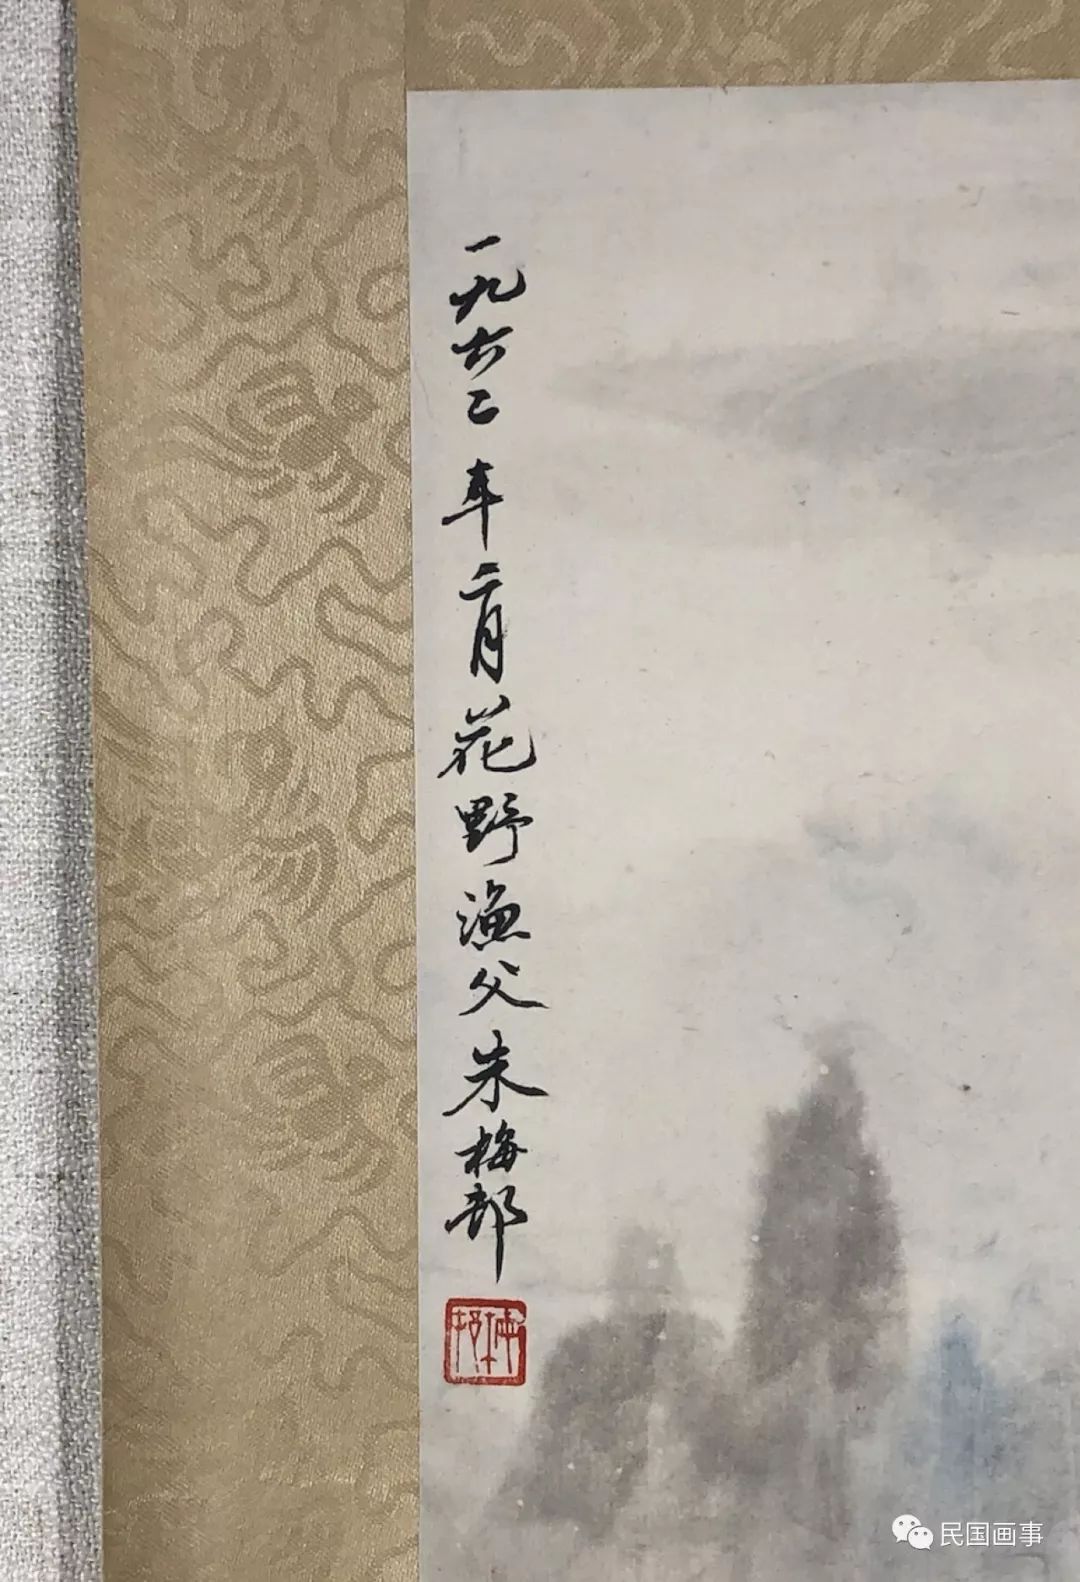 一九六二年二月花野渔父朱梅邨
梅邨
民国画事